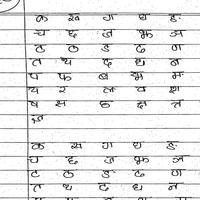 क ख ग घ ङ
च छ ज झ ञ
ट ठ ड ढ ण
त थ द ध न
प फ ब भ म
य र ल व श
ष स ह क्ष त्र
ज्ञ
क ख ग घ ङ
च छ ज झ ञ
ट ठ ड ढ ण
त थ द ध न